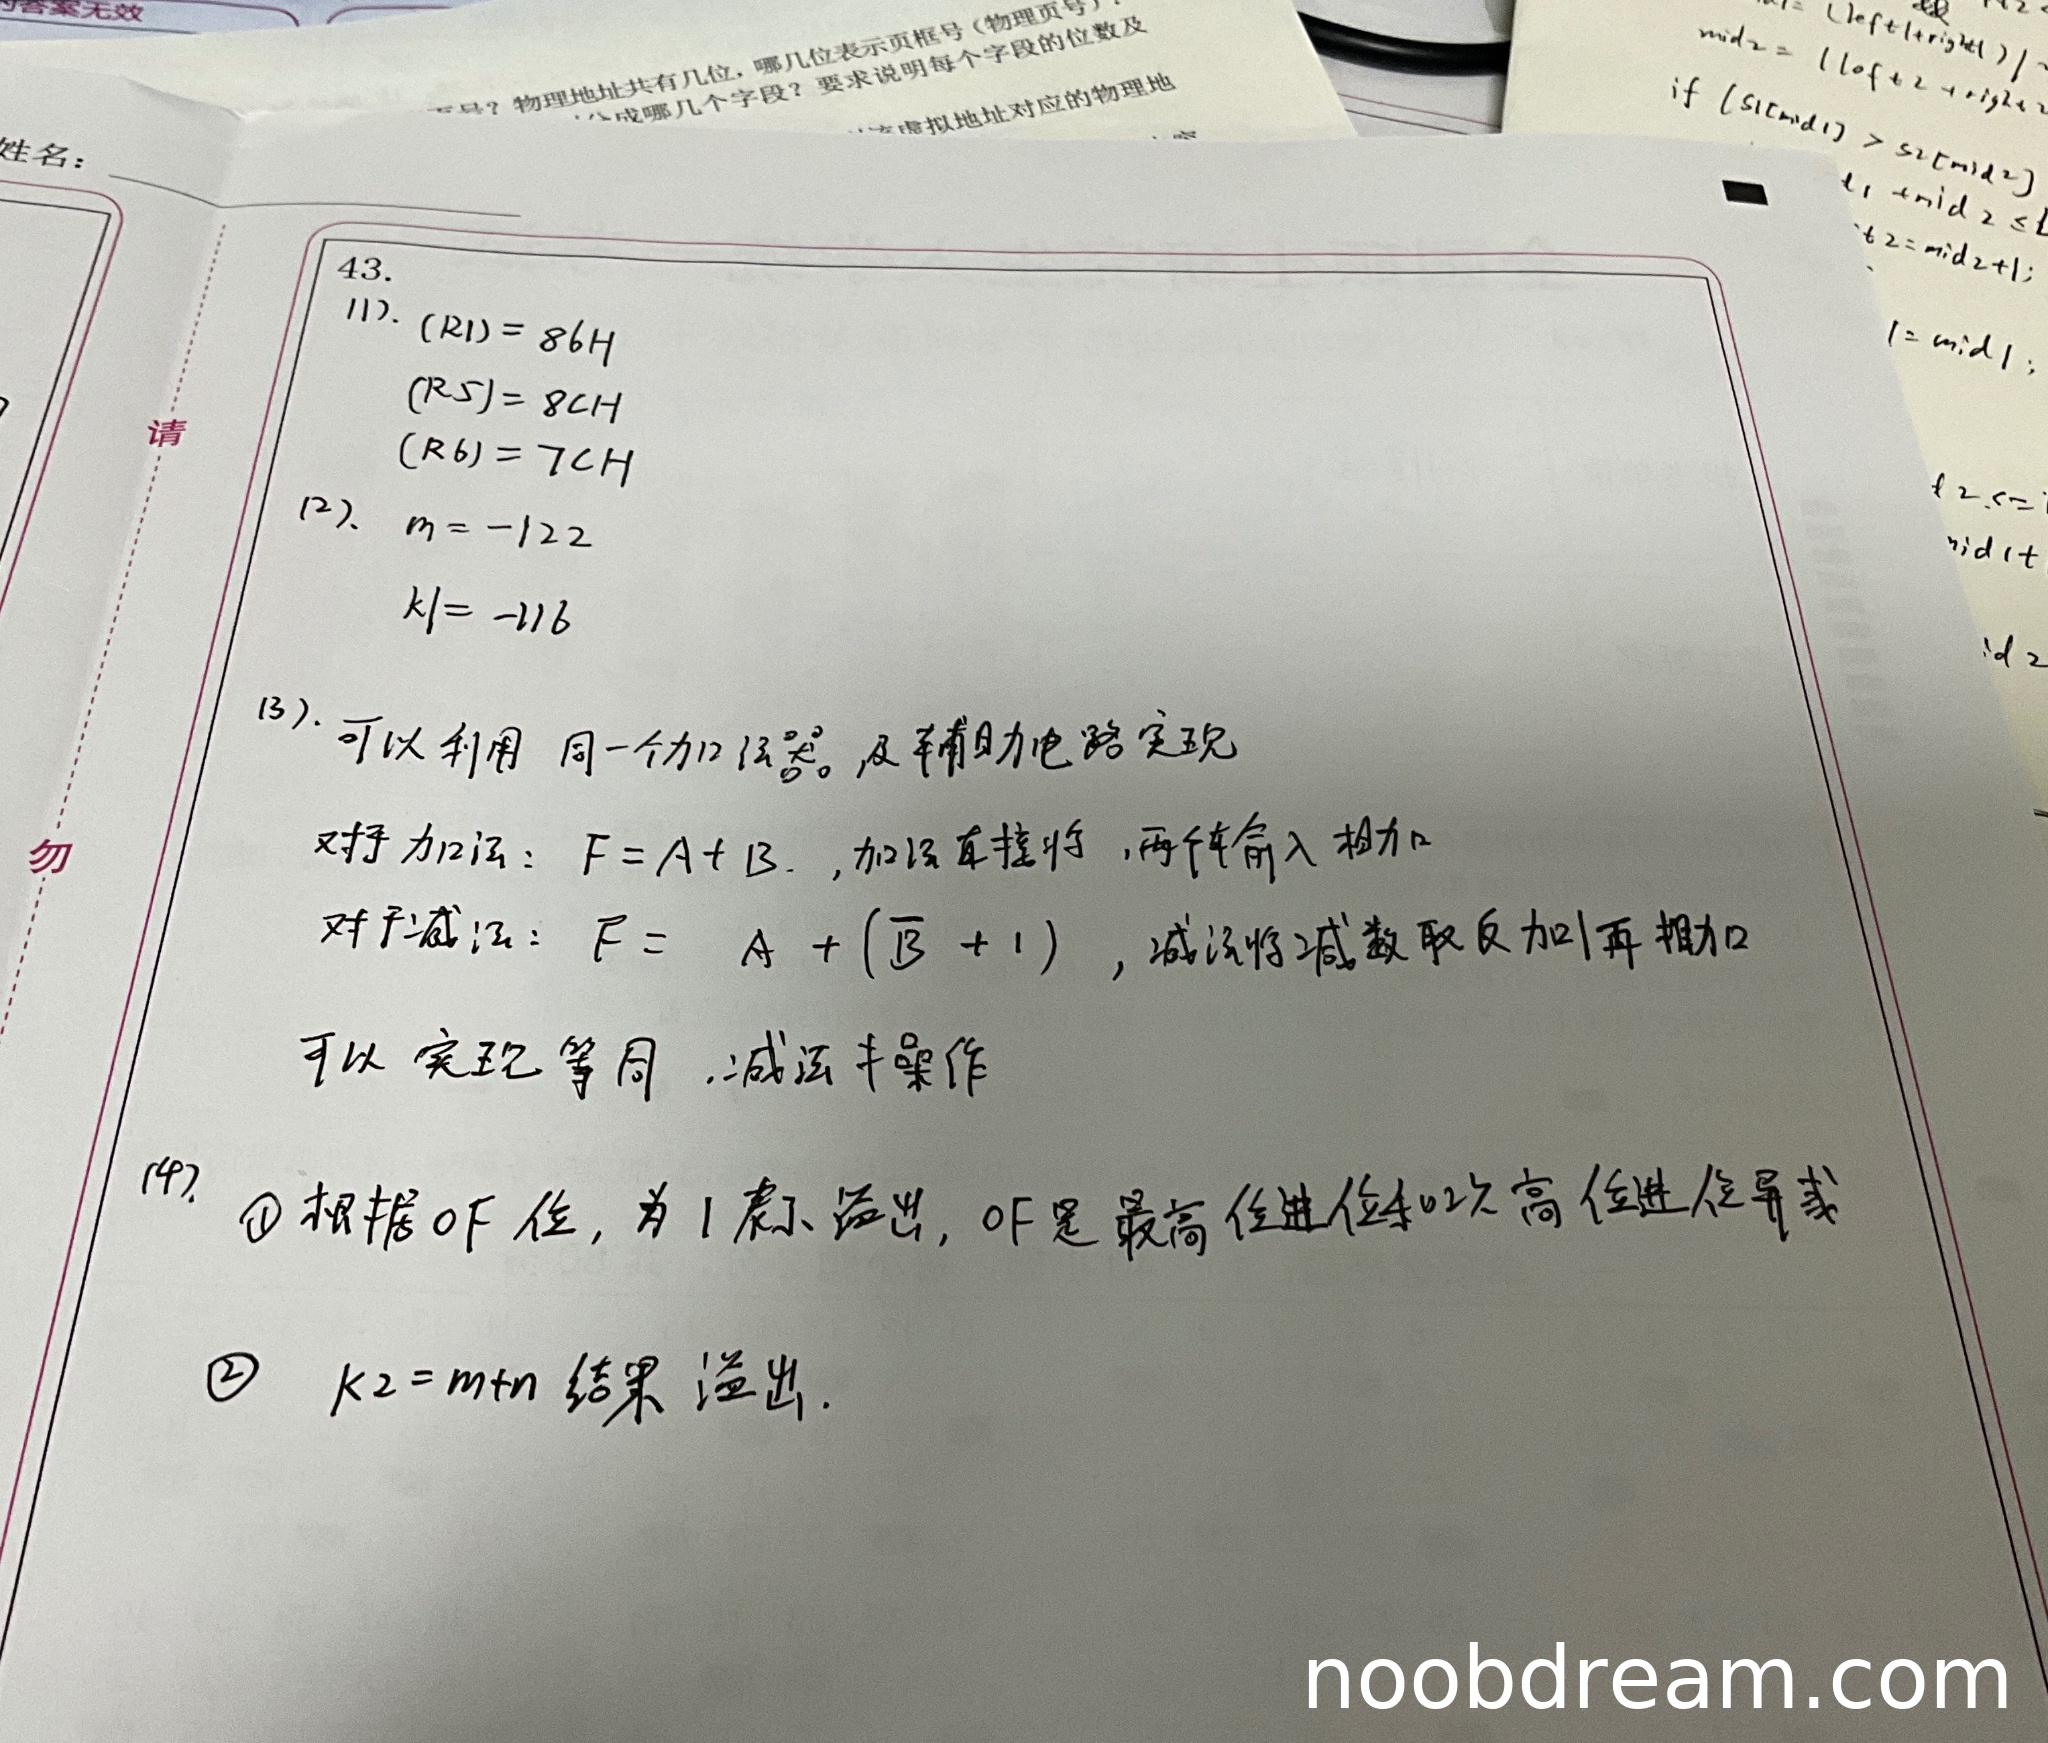 答案无效
页号？物理地址共有几位，哪几位表示页框号（物理页号）？
成哪几个字段？要求说明每个字段的位数及
虚拟地址对应的物理地
mid2 = (left2+right2
if (s1[mid1] > s2[mid2]
t1 +mid2 ≤
t2=mid2+1;
1=mid1;
t2<=
mid1+
id2
姓名：
请
勿
43.
(1). (R1)= 86H
(R5)= 8CH
(R6)= 7CH
(2). m=-122
k1= -116
(3). 可以利用 同一个加法器,及辅助电路实现
对于加法: F=A+B. ,加法直接将,两个输入相加
对于减法: F= A +(B̅ +1) ,减法将减数取反加1再相加
可以实现等同 减法 操作
(4). ①根据OF位,为1表示溢出,OF是最高位进位和次高位进位异或
② k2=m+n 结果溢出.
noobdream.com